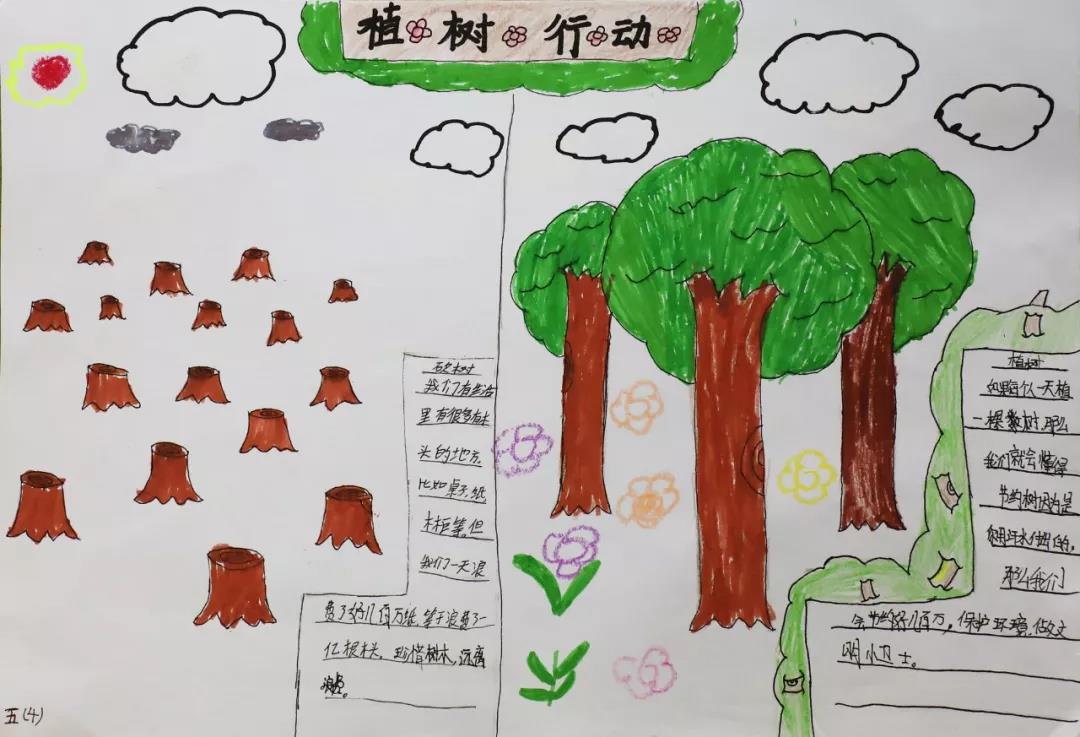 植树行动
砍树
我们有生活
里有很多有木
头的地方,
比如桌子,纸
木柜等,但
我们一天浪
费了好几百万纸,等于浪费了一
亿根木头,珍惜树木,远离
植树
如果每个人一天植
一棵数树,那么
我们就会懂得
节约树因为是
用汗水做的,
那么我们
会节约好几百万,保护环境,做文
明小卫士。
五(4)